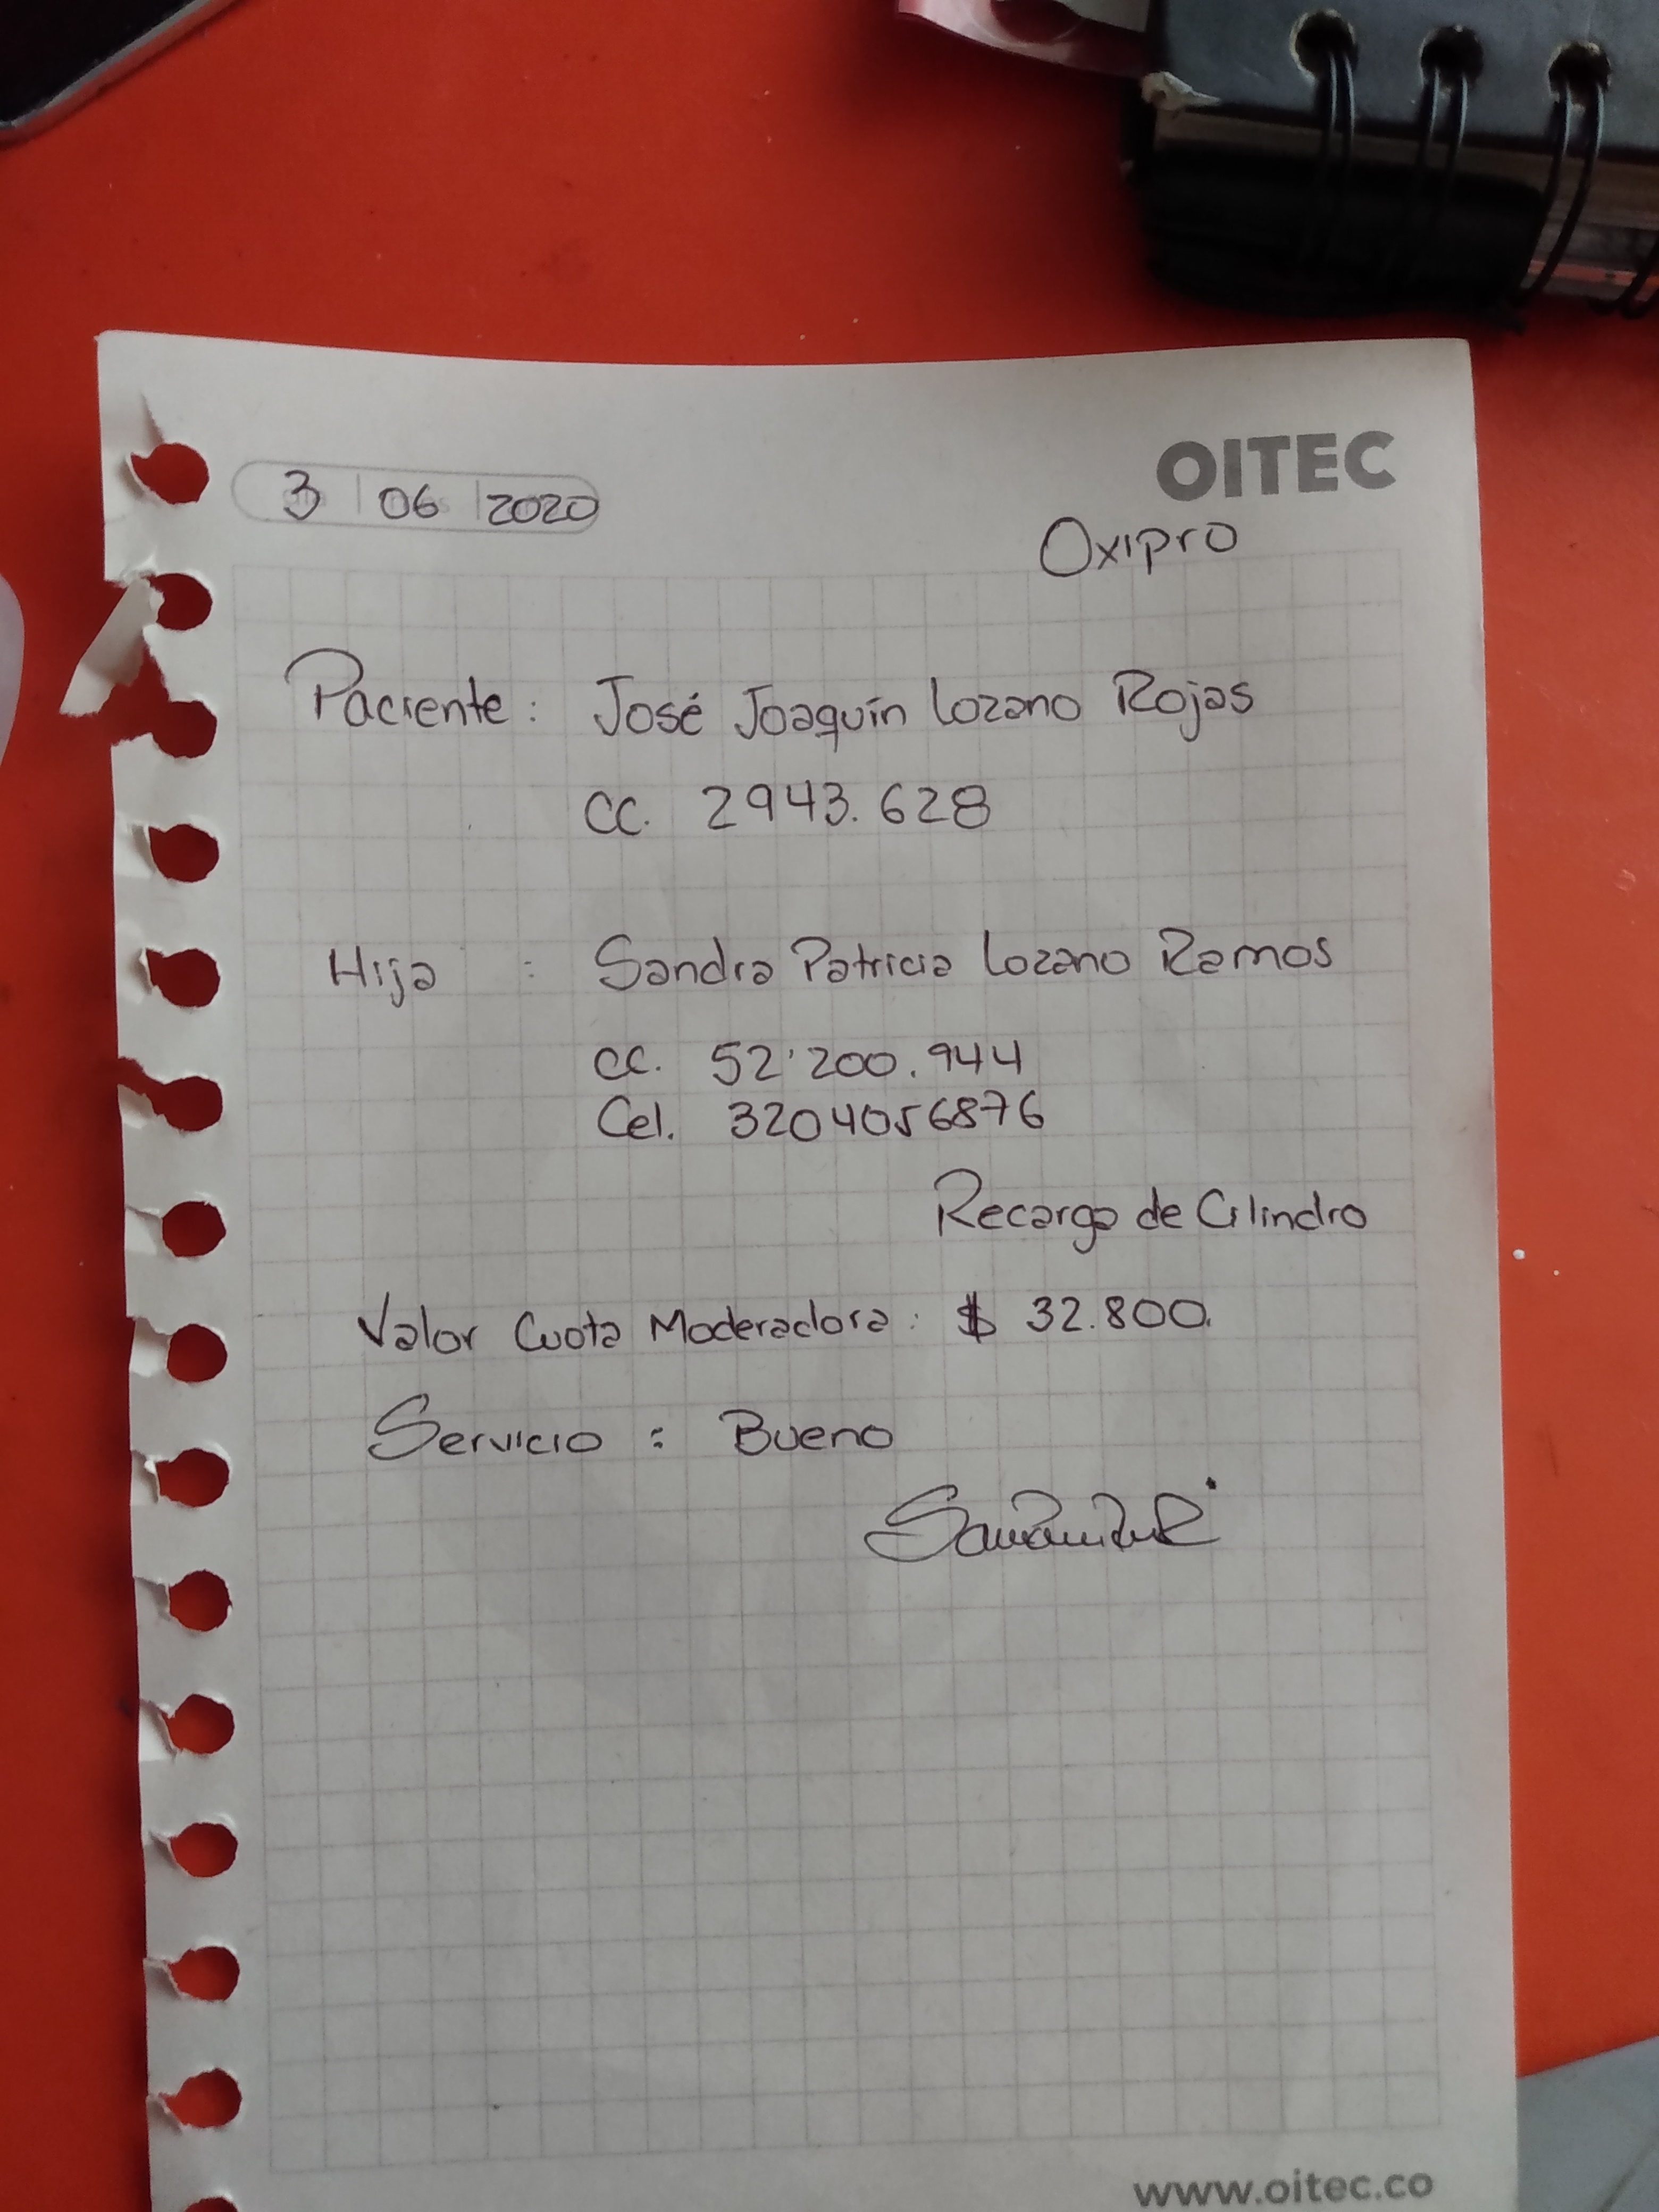 OITEC
3 06 2020
Oxipro
Paciente: José Joaquín Lozano Rojas
CC. 2943.628
Hija : Sandra Patricia Lozano Ramos
CC. 52'200.944
Cel. 3204056876
Recarga de Cilindro
Valor Cuota Moderadora: $ 32.800.
Servicio : Bueno
www.oitec.co